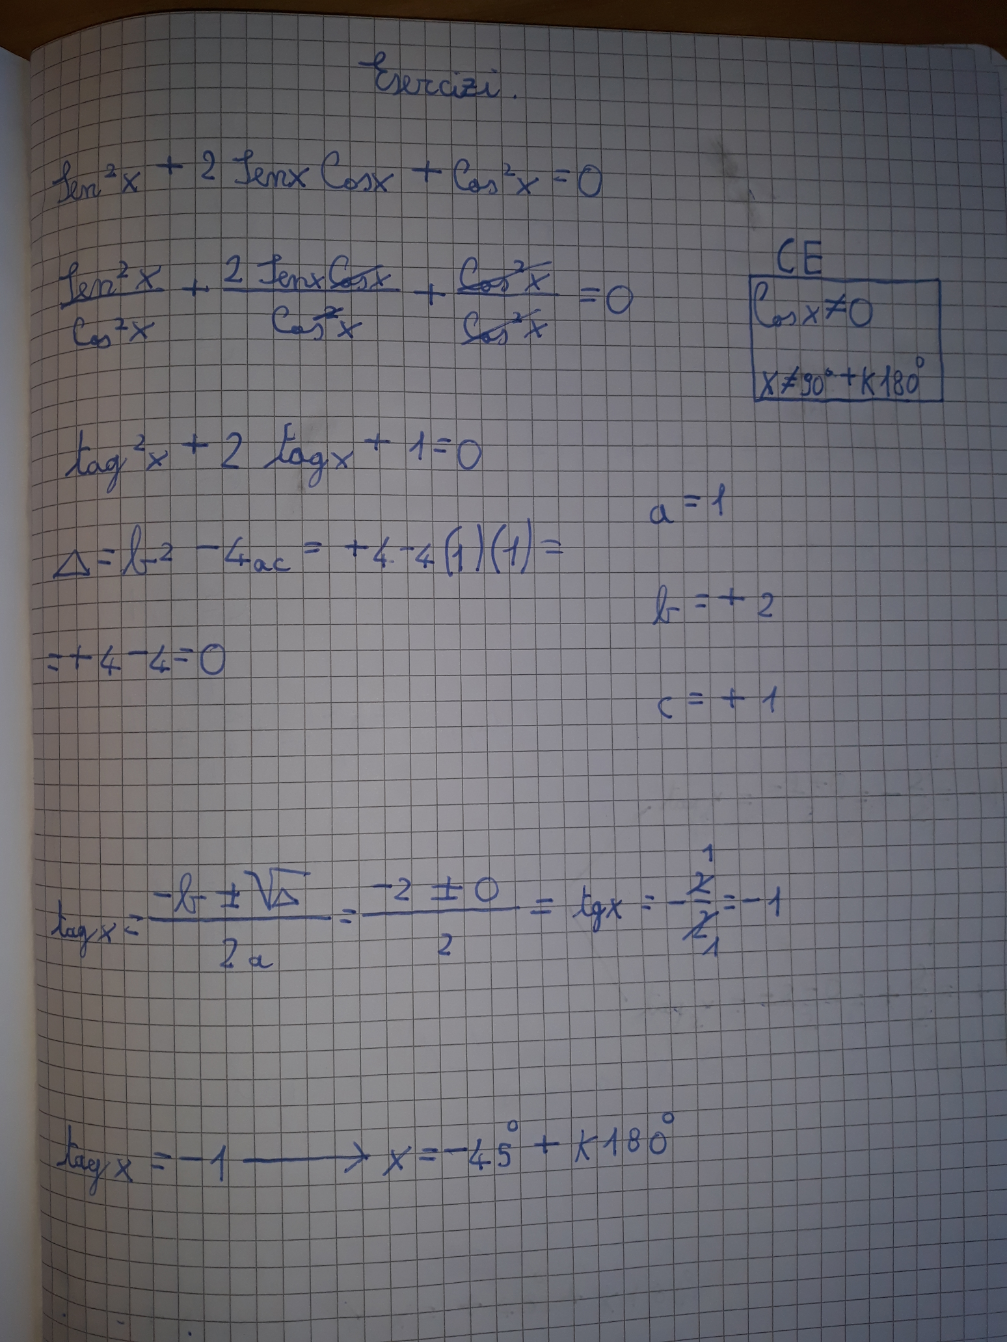 Esercizi.
Sen²x + 2 Senx Cosx + Cos²x = 0
Sen²x/Cos²x + 2 Senx Cosx/Cos²x + Cos²x/Cos²x = 0
CE
Cosx ≠ 0
x ≠ 90° + K180°
tag²x + 2 tagx + 1 = 0
a = 1
Δ = b² - 4ac = +4 - 4(1)(1) =
b = + 2
= + 4 - 4 = 0
c = + 1
tagx = (-b ± √Δ)/2a = (-2 ± 0)/2 = tgx = -2/2 = -1
1
1
tagx = -1 ⟶ x = -45° + K180°